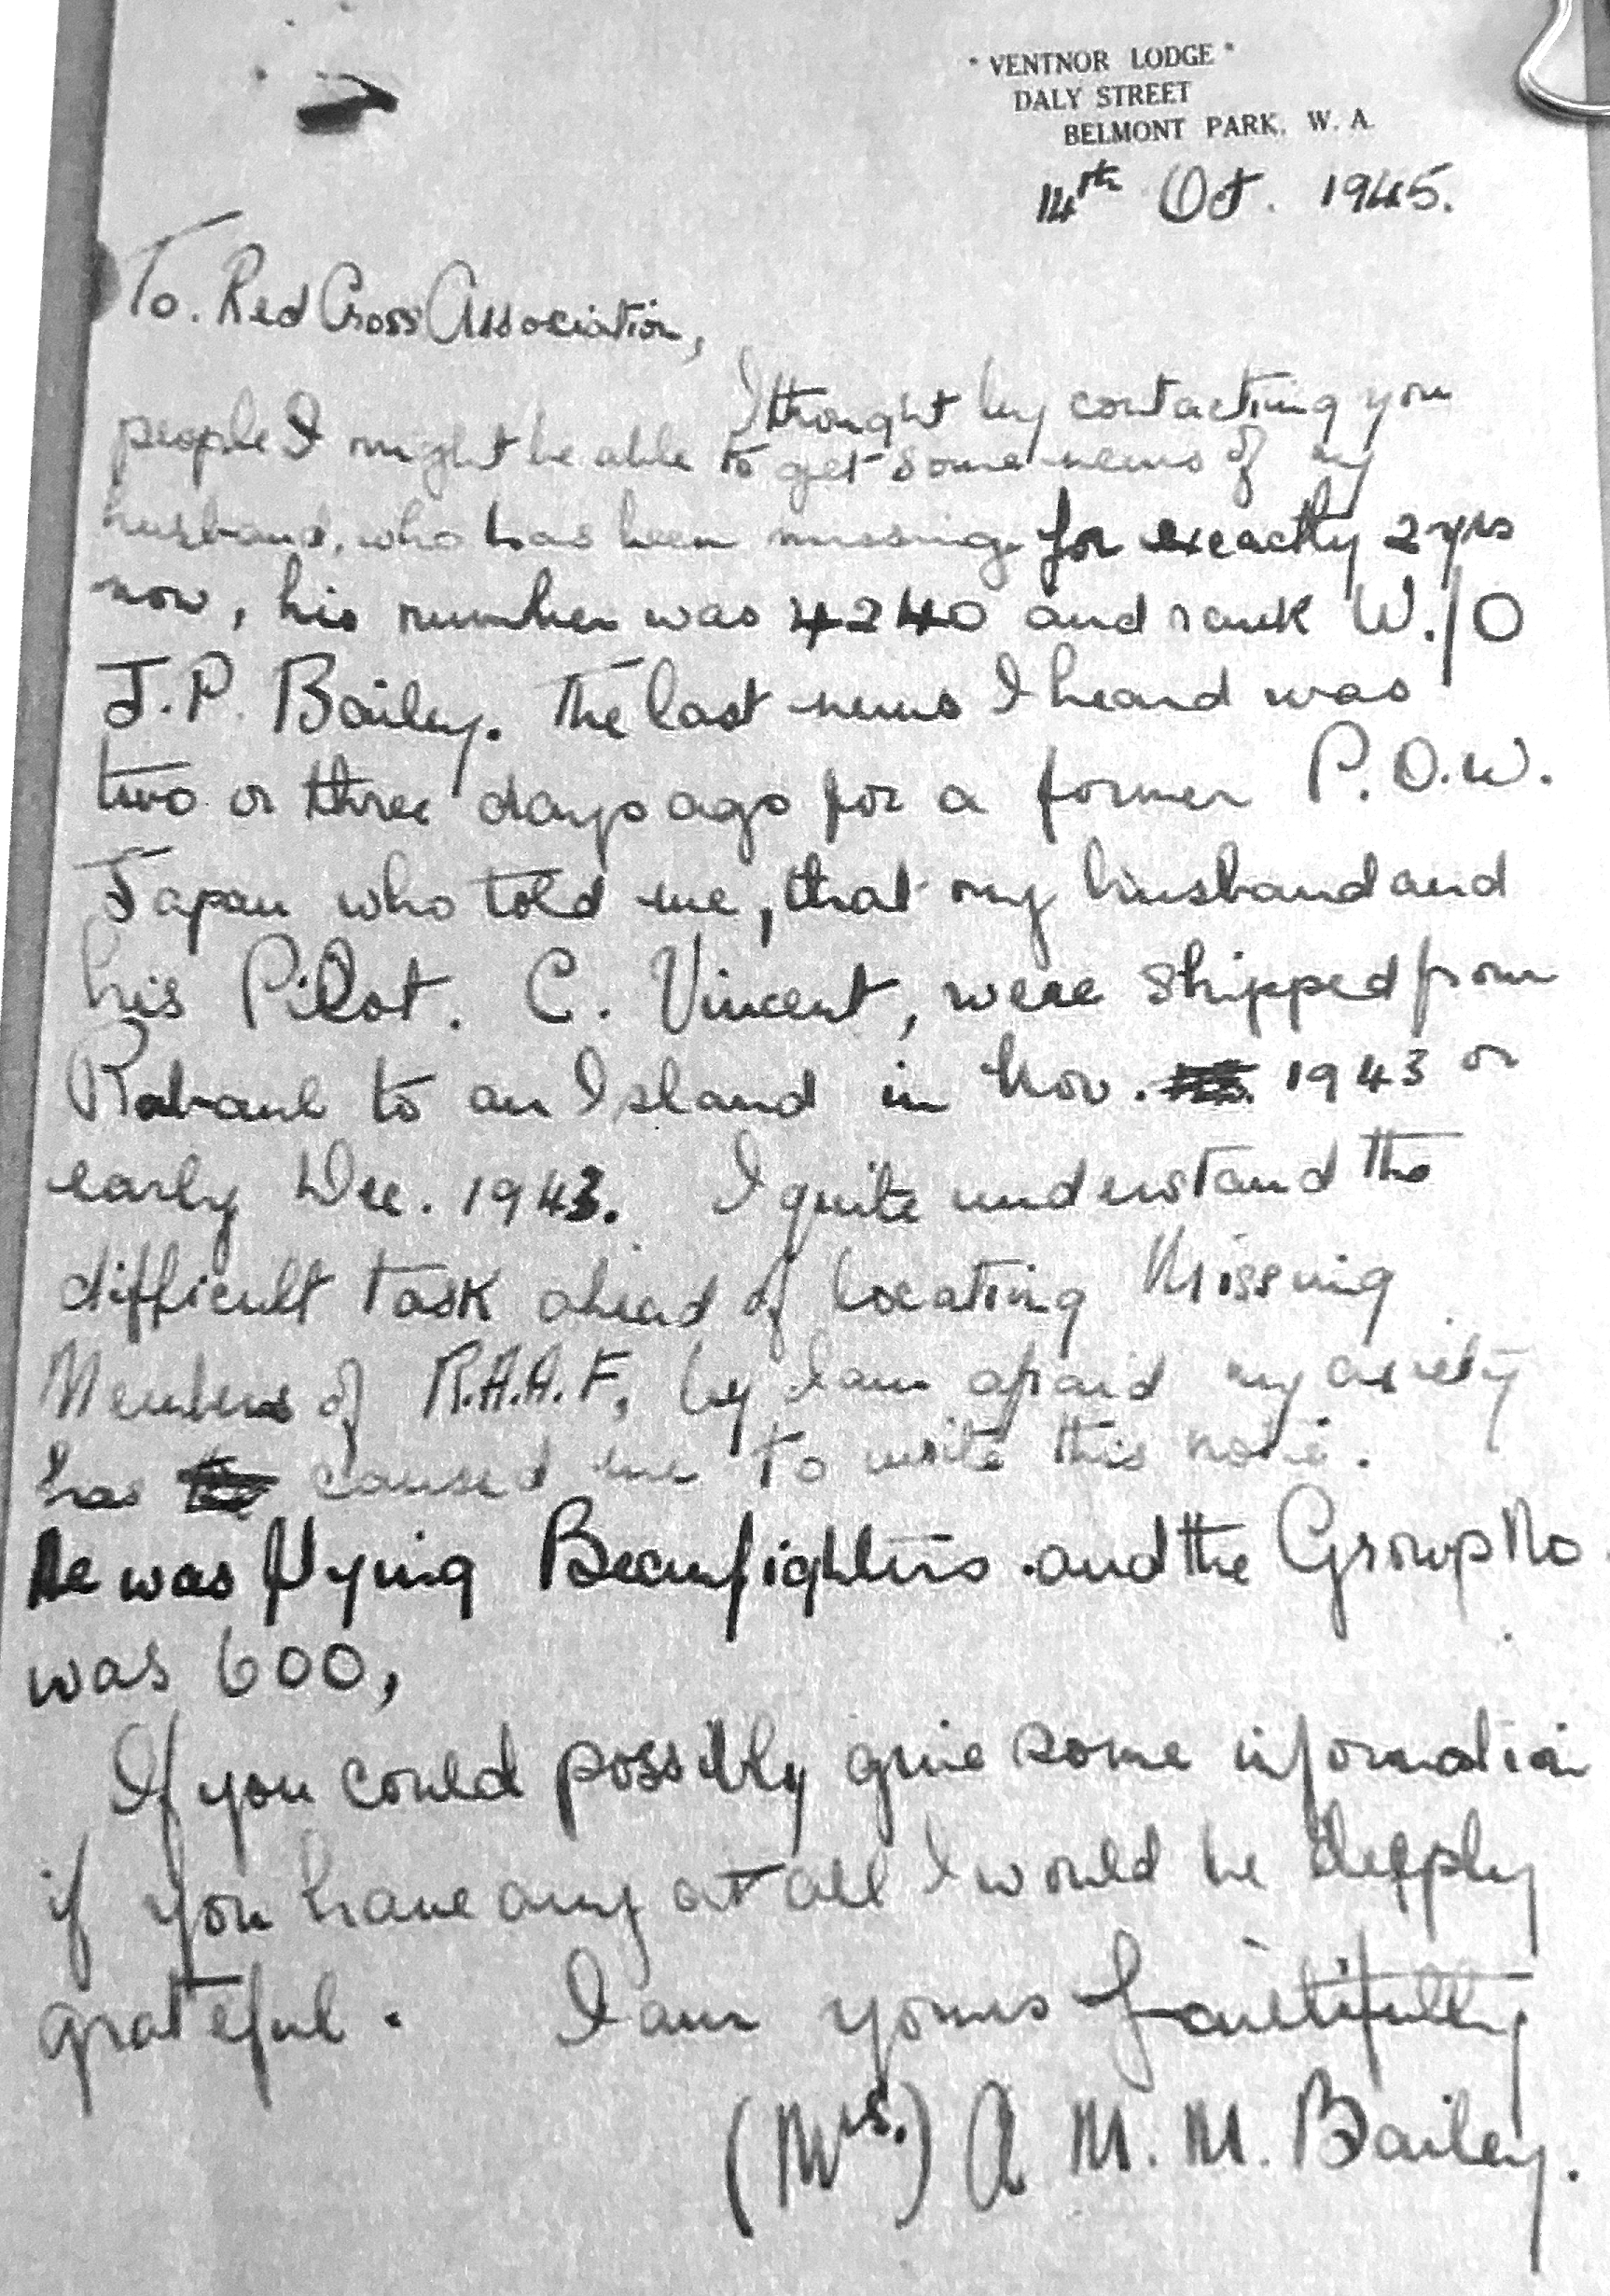 "VENTNOR LODGE"
DALY STREET
BELMONT PARK, W. A.
14th Oct. 1945.
To. Red Cross Association,
I thought by contacting you
people I might be able to get some news of my
husband, who has been missing for exactly 2 yrs
now, his number was 4240 and rank W./O
J.P. Bailey. The last news I heard was
two or three days ago for a former P.O.W.
Japan who told me, that my husband and
his Pilot. C. Vincent, were shipped from
Rabaul to an Island in Nov. 1943 or
early Dec. 1943. I quite understand the
difficult task ahead of locating Missing
Members of R.A.A.F, by I am afraid my axiety
has caused me to write this note.
He was flying Beaufighters and the Group No.
was 600,
If you could possibly give some information
if you have any at all I would be deeply
grateful. I am yours faithfully
(Mrs.) A M. M. Bailey.